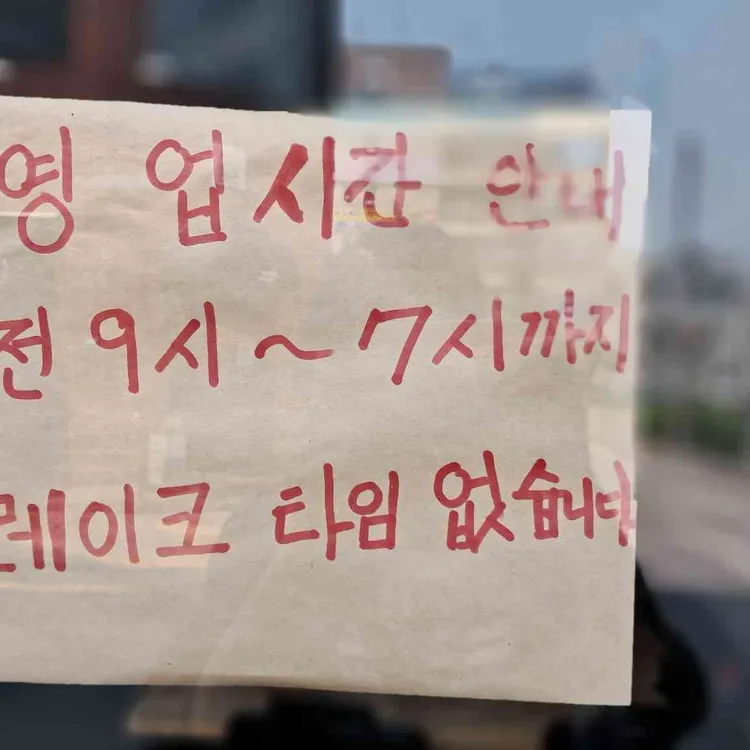 영업시간 안내
전 9시~7시까지
레이크 타임 없습니다